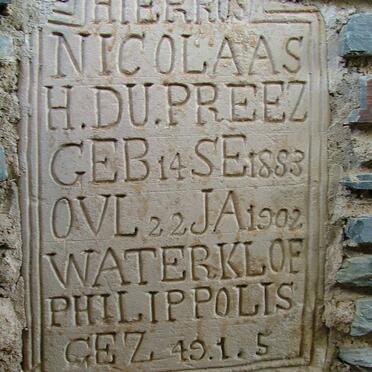 HIERRUS
NICOLAAS
H.DU.PREEZ
GEB 14 SE 1883
OVL 22 JA 1902
WATERKLOF
PHILIPPOLIS
GEZ 49.1.5